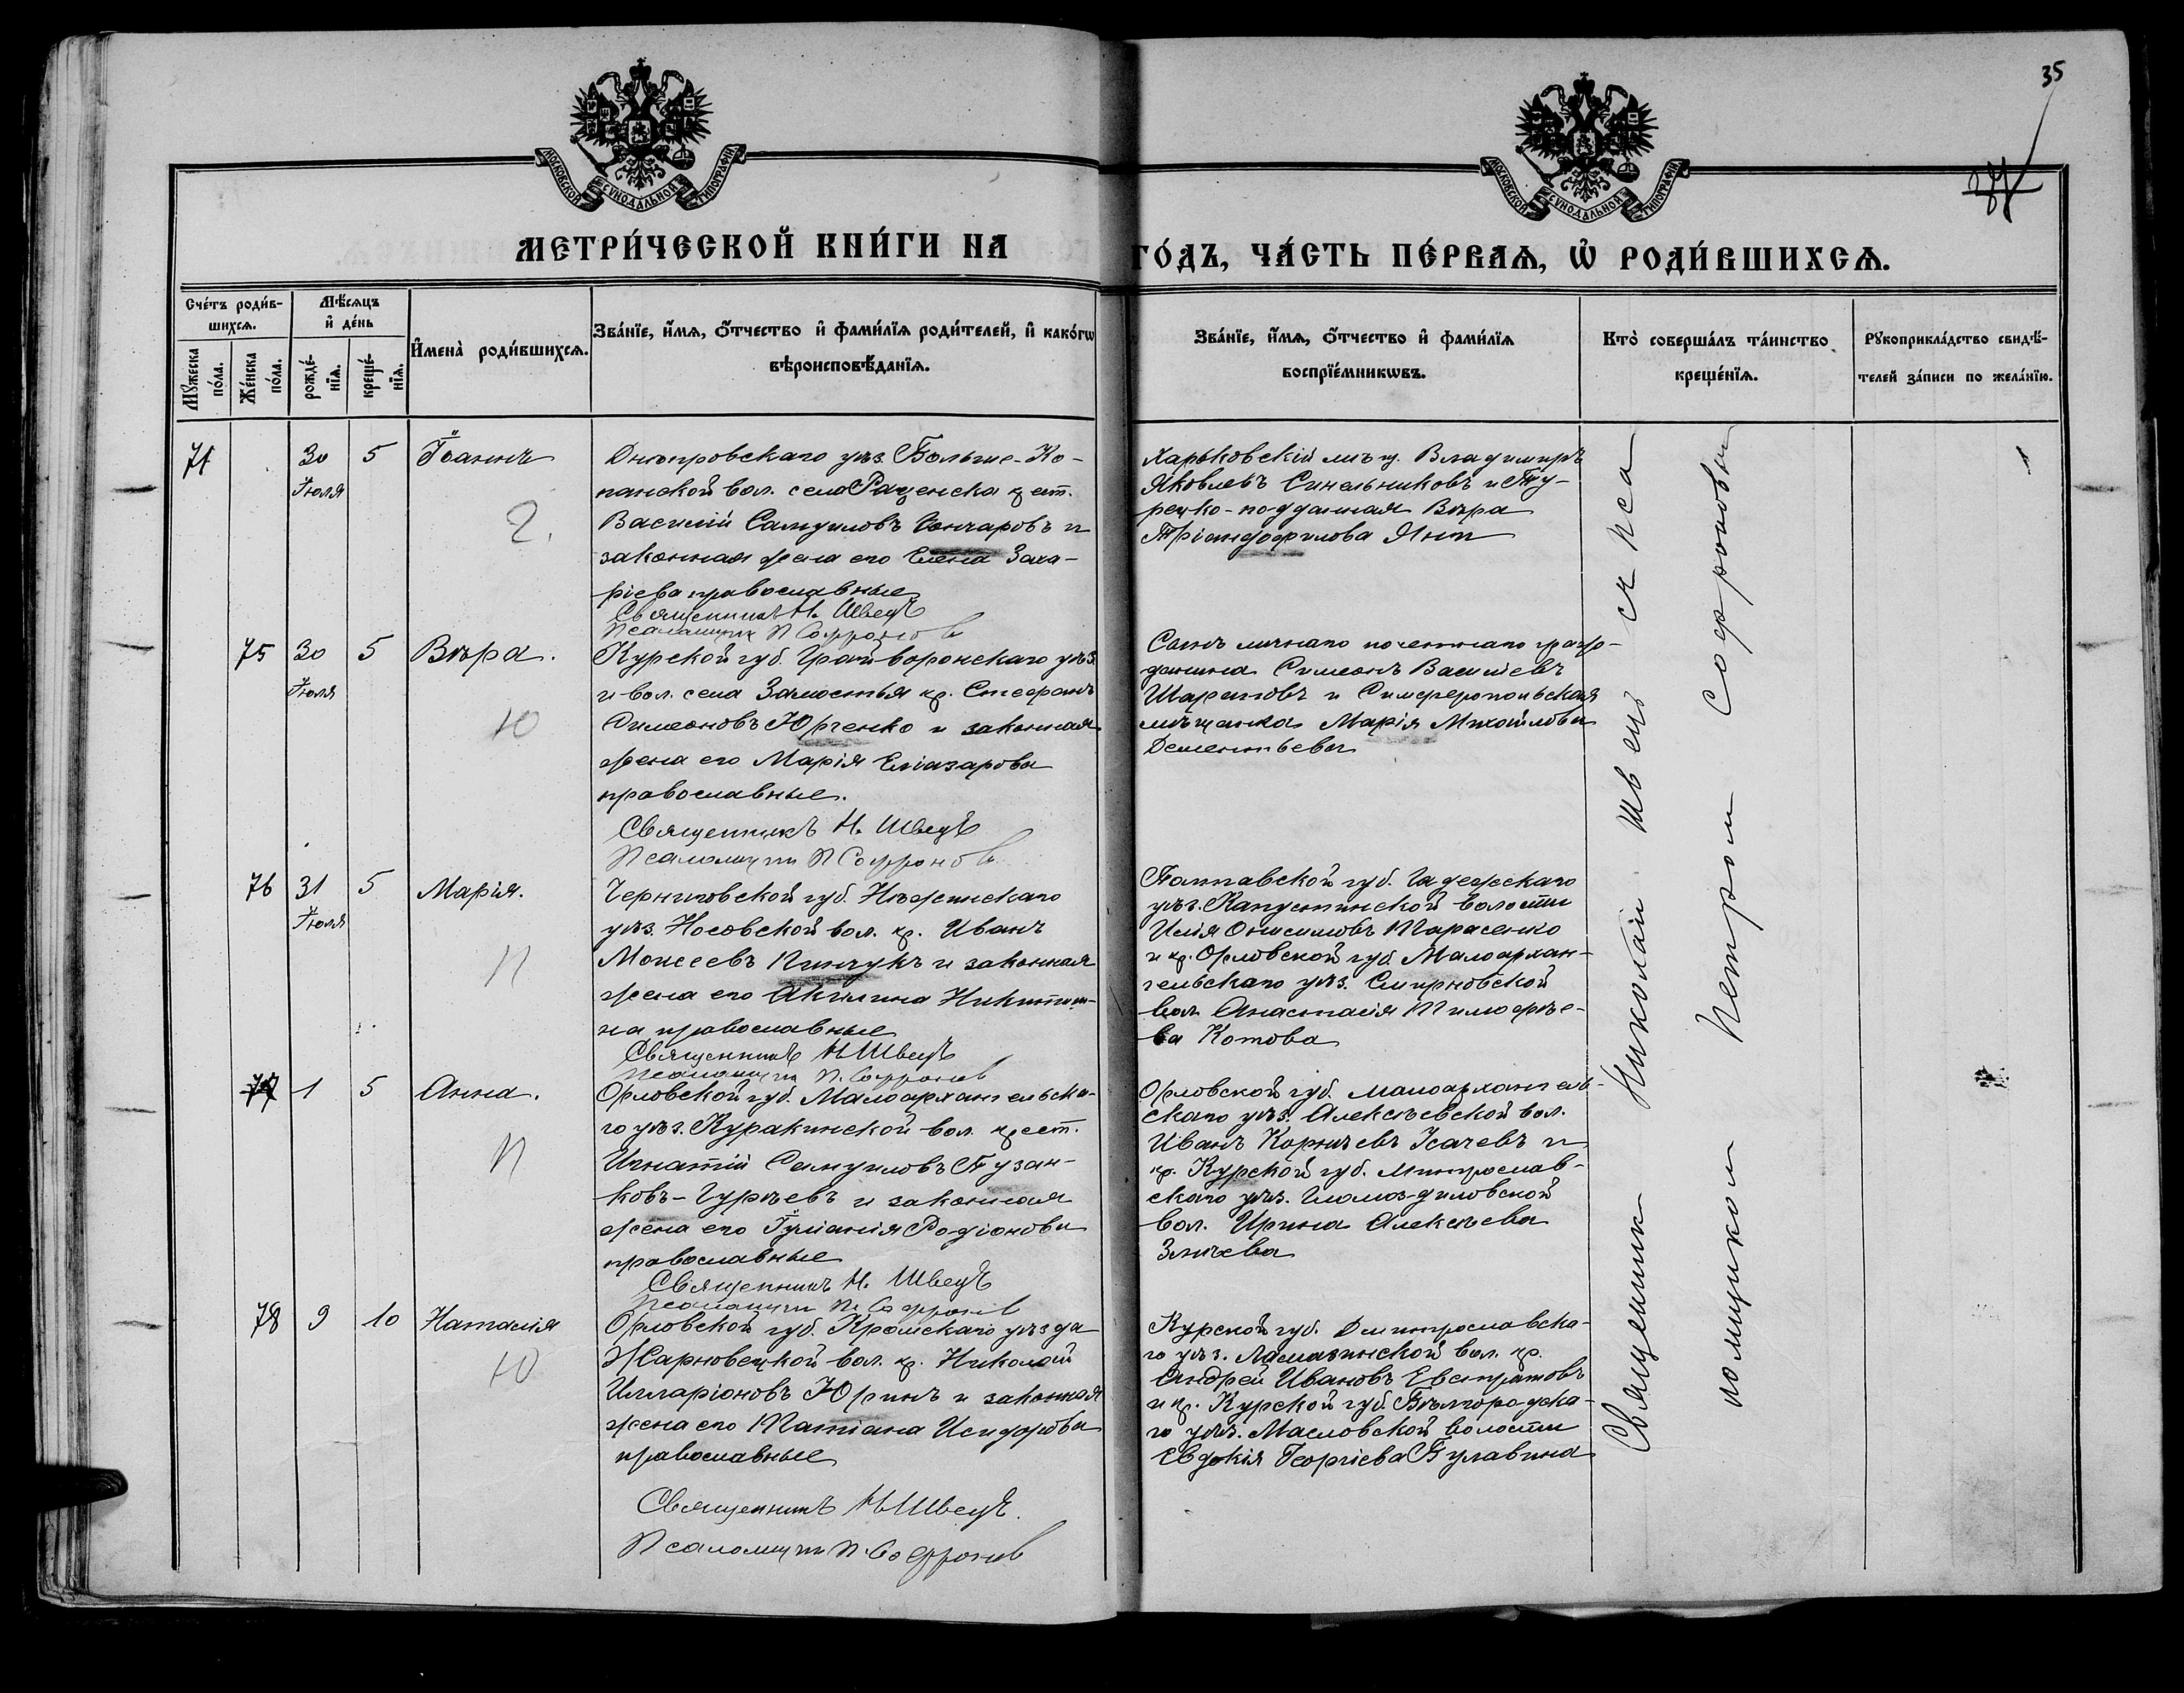 35
МОСКОВСКОЙ СѴНОДАЛЬНОЙ ТИПОГРАФІИ
МОСКОВСКОЙ СѴНОДАЛЬНОЙ ТИПОГРАФІИ
МЕТРИ́ЧЕСКОЙ КНИ́ГИ НА ГО́ДЪ, ЧА́СТЬ ПЕ́РВАѦ, Ѡ҆ РОДИ́ВШИХСѦ.
Сче́тъ роди́в-
шихсѧ.
Мꙋ́жеска
по́ла.
Же́нска
по́ла.
Мѣ́сѧцъ
и҆ де́нь
рожде́-
нїѧ.
креще́-
нїѧ.
И҆мена̀ роди́вшихсѧ.
Зва́нїе, и҆́мѧ, ѻ҆́тчество и҆ фами́лїѧ роди́телей, и҆ како́гѡ
вѣроисповѣ́данїѧ.
Зва́нїе, и҆́мѧ, ѻ҆́тчество и҆ фами́лїѧ
воспрїе́мникѡвъ.
Кто̀ соверша́лъ та́инство
креще́нїѧ.
Рꙋкоприкла́дство свидѣ́-
телей за́писи по жела́нїю.
71
30
Іюля
5
Іоаннъ
Днѣпровскаго уѣз. Больше-Ко-
панской вол. села Раденска крест.
Василій Самуиловъ Гончаровъ и
законная жена его Елена Заха-
ріева православные
Священникъ Н. Швецъ
Псаломщикъ П Софроновъ
Харьковскій мѣщ. Владимиръ
Яковлевъ Синельниковъ и Ту-
рецко-подданная Вѣра
Тріандофилова Янп
75
30
Іюля
5
Вѣра.
Курской губ. Грайворонскаго уѣз.
и вол. села Замостья кр. Стефанъ
Симеоновъ Юрченко и законная
жена его Марія Еліазарова
православные.
Священникъ Н. Швецъ
Псаломщикъ П Софроновъ
Сынъ личнаго почетнаго граж-
данина Симеонъ Васильевъ
Шариповъ и Симферопольская
мѣщанка Марія Михайлова
Дементьева
76
31
Іюля
5
Марія.
Черниговской губ. Нѣжинскаго
уѣз. Носовской вол. кр. Иванъ
Моисеевъ Пинчукъ и законная
жена его Акилина Никитин-
на православные
Священникъ Н Швецъ
Псаломщикъ П. Софроновъ
Полтавской губ. Гадяжскаго
уѣз. Капустинской волости
Илія Онисимовъ Тарасенко
и кр. Орловской губ. Малоархан-
гельскаго уѣз. Смирновской
вол. Анастасія Тимофѣе-
ва Котова
77
1
5
Анна.
Орловской губ. Малоархангельска-
го уѣз. Куракинской вол. крест.
Игнатій Самуиловъ Пузан-
ковъ-Гурѣевъ и законная
жена его Іуліанія Родіонова
православные
Священникъ Н. Швецъ
Псаломщикъ П. Софроновъ
Орловской губ. Малоархангель-
скаго уѣз. Алексѣевской вол.
Иванъ Корнѣевъ Исачевъ и
кр. Курской губ.
скаго уѣз.
вол. Ирина Алексѣева
78
9
10
Наталія
Орловской губ. Кромскаго уѣзда
Жарновецкой вол. кр. Николай
Илларіоновъ Юринъ и законная
жена его Татіана Исидорова
православные
Священникъ Н Швецъ.
Псаломщикъ П. Софроновъ
Курской губ. Дмитрославска-
го уѣз. вол. кр.
Андрей Ивановъ Евстратовъ
и кр. Курской губ. Бѣлгородска-
го уѣз. Масловской волости
Евдокія Георгіева Булавина
Священник Николай Швецъ съ Пса
ломщиком Петром Софроновым